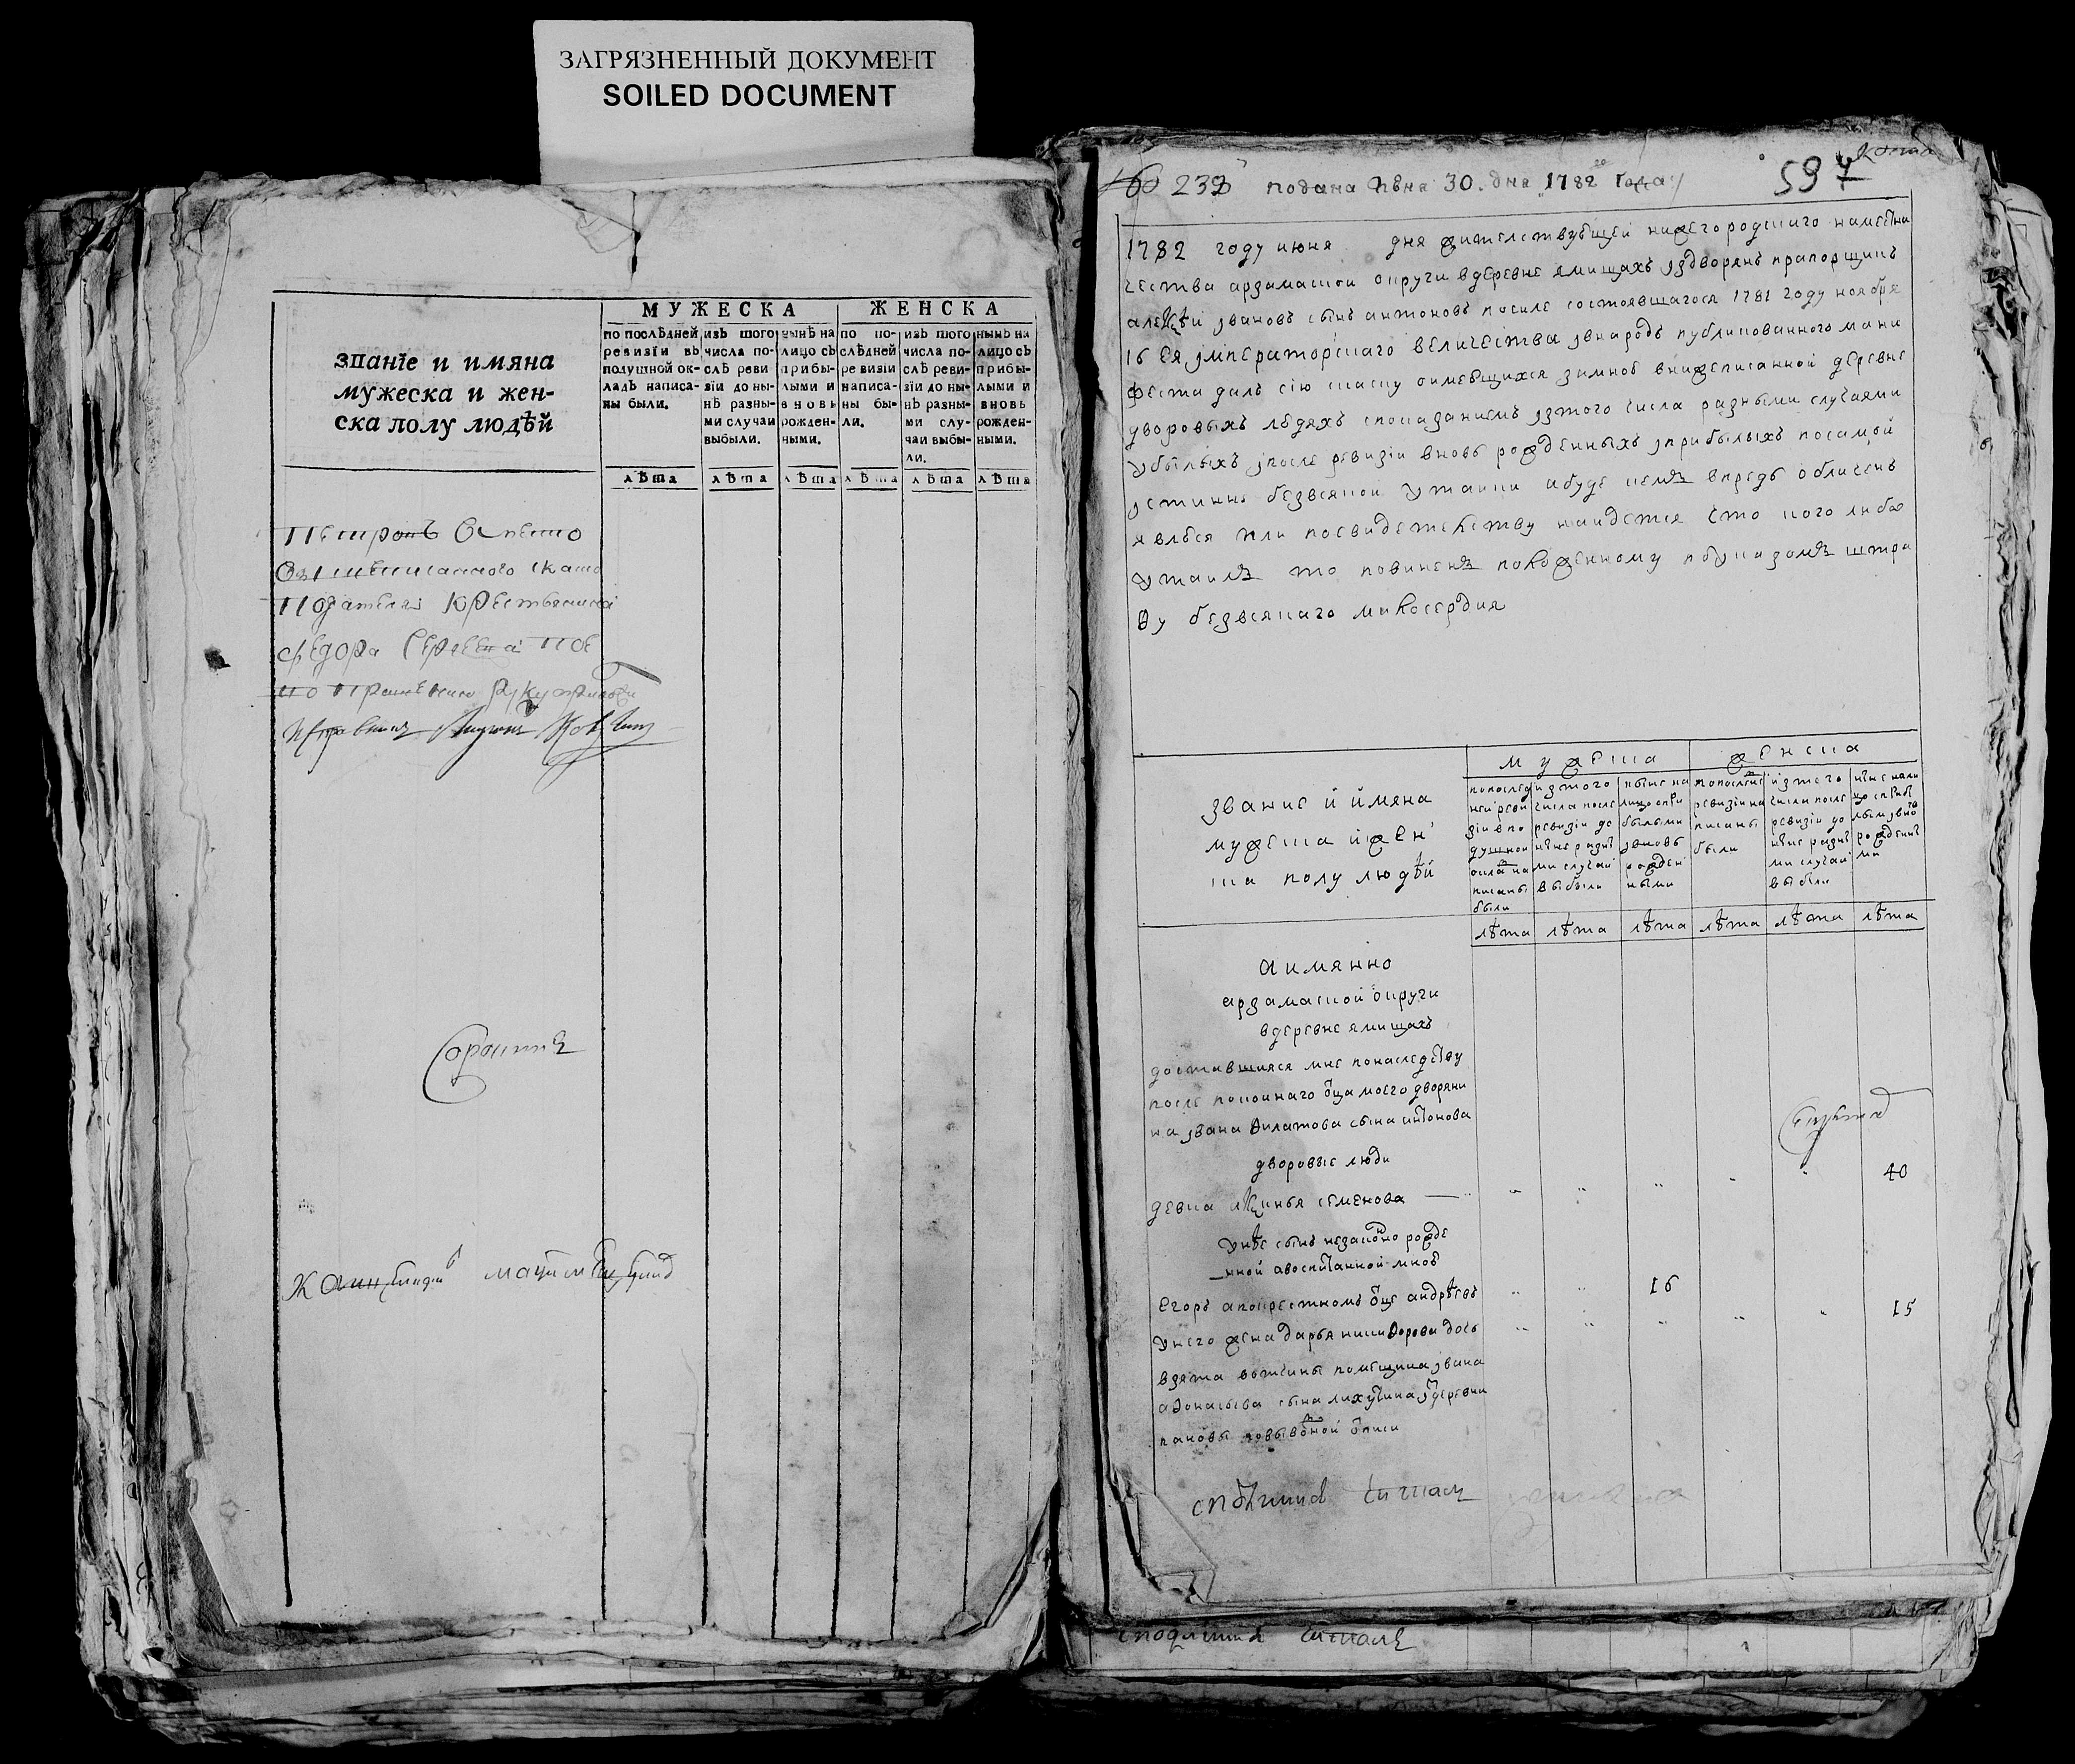 ЗАГРЯЗНЕННЫЙ ДОКУМЕНТ
SOILED DOCUMENT
званїе и имяна
мужеска и жен-
ска полу людѣй
МУЖЕСКА
ЖЕНСКА
по послѣдней
ревизїи въ
подушной ок-
ладъ написа-
ны были.
изъ того
числа по-
слѣ реви
зїи до ны-
нѣ разны-
ми случаи
выбыли.
нынѣ на
лицо съ
прибы-
лыми и
вновь
рожден-
ными.
по по-
слѣдней
ревизїи
написа-
ны бы-
ли.
изъ того
числа по-
слѣ реви-
зїи до ны-
нѣ разны-
ми слу-
чаи выбы-
ли.
нынѣ на
лицо съ
прибы-
лыми и
вновь
рожден-
ными.
лѣта лѣта лѣта лѣта лѣта лѣта
подателя крестьянина
федора
233 подана июня 30. дня 1782 года
597
копия
1782 году июня дня жителствующей нижегородского намесна
чества арзамаской округи вдеревне ямищахъ издворянъ прапорщикъ
алексѣй ивановъ сынъ антоновъ посиле состоявшагося 1781 году ноября
16 ея императорскаго величества ивнародъ публикованного мани
феста далъ сїю скаску оимеющихся замною внижеписанной деревне
дворовыхъ людяхъ спопазанием изтого числа разными случаями
убылыхъ ипосле ревизїи вновь рожденныхъ иприбылыхъ посамой
истинне безвсякой утайки абуде кемъ впредь обличенъ
явлюся или посвидетельству найдется что кого либо
утаилъ то повиненъ положенному поуказомъ штра
фу безвсякаго милосердия
звание и имяна
мужеска и жен
ска полу людѣй
мужеска
женска
попослед
ней реви
зїи впо
душной
окладъ на
писаны
были
изтого
числа после
ревизїи до
ныне разны
ми случаи
выбыли
ныне на
лицо спри
былыми
ивновь
рожден
ными
попослене
ревизїи на
писаны
были
изтого
числа после
ревизїи до
ныне разны
ми случаи
выбыли
ныне нали
цо сприбы
лыми ивно
рожденны
ми
лѣта лѣта лѣта лѣта лѣта лѣта
а имянно
арзамаской округи
вдеревне ямищахъ
доставшияся мне понаследству
после покойнаго отца моего дворяни
на ивана филатова сына антонова
дворовые люди
девка аксинья семенова 40
унее сынъ незаконно рожде
нной авоспитанной мною
егоръ апокрестномъ отце андрѣевъ 16
унего жена дарья никифорова дочь 15
взята вотчины помещика ивана
афонасьева сына лихутина издеревни
пановы повыводной отписи
сподлинной читалъ
сподлинной читалъ